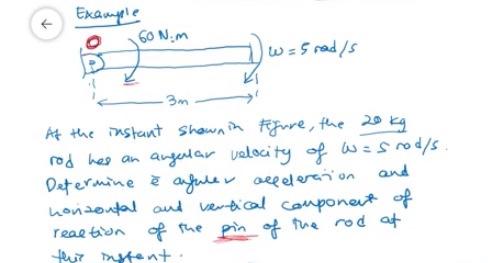 Example
60 N.m
ω = 5 rad/s
3m
At the instant shown in figure, the 20 kg
rod has an angular velocity of ω = 5 rad/s.
Determine angular acceleration and
horizontal and vertical component of
reaction of the pin of the rod at
this instant.